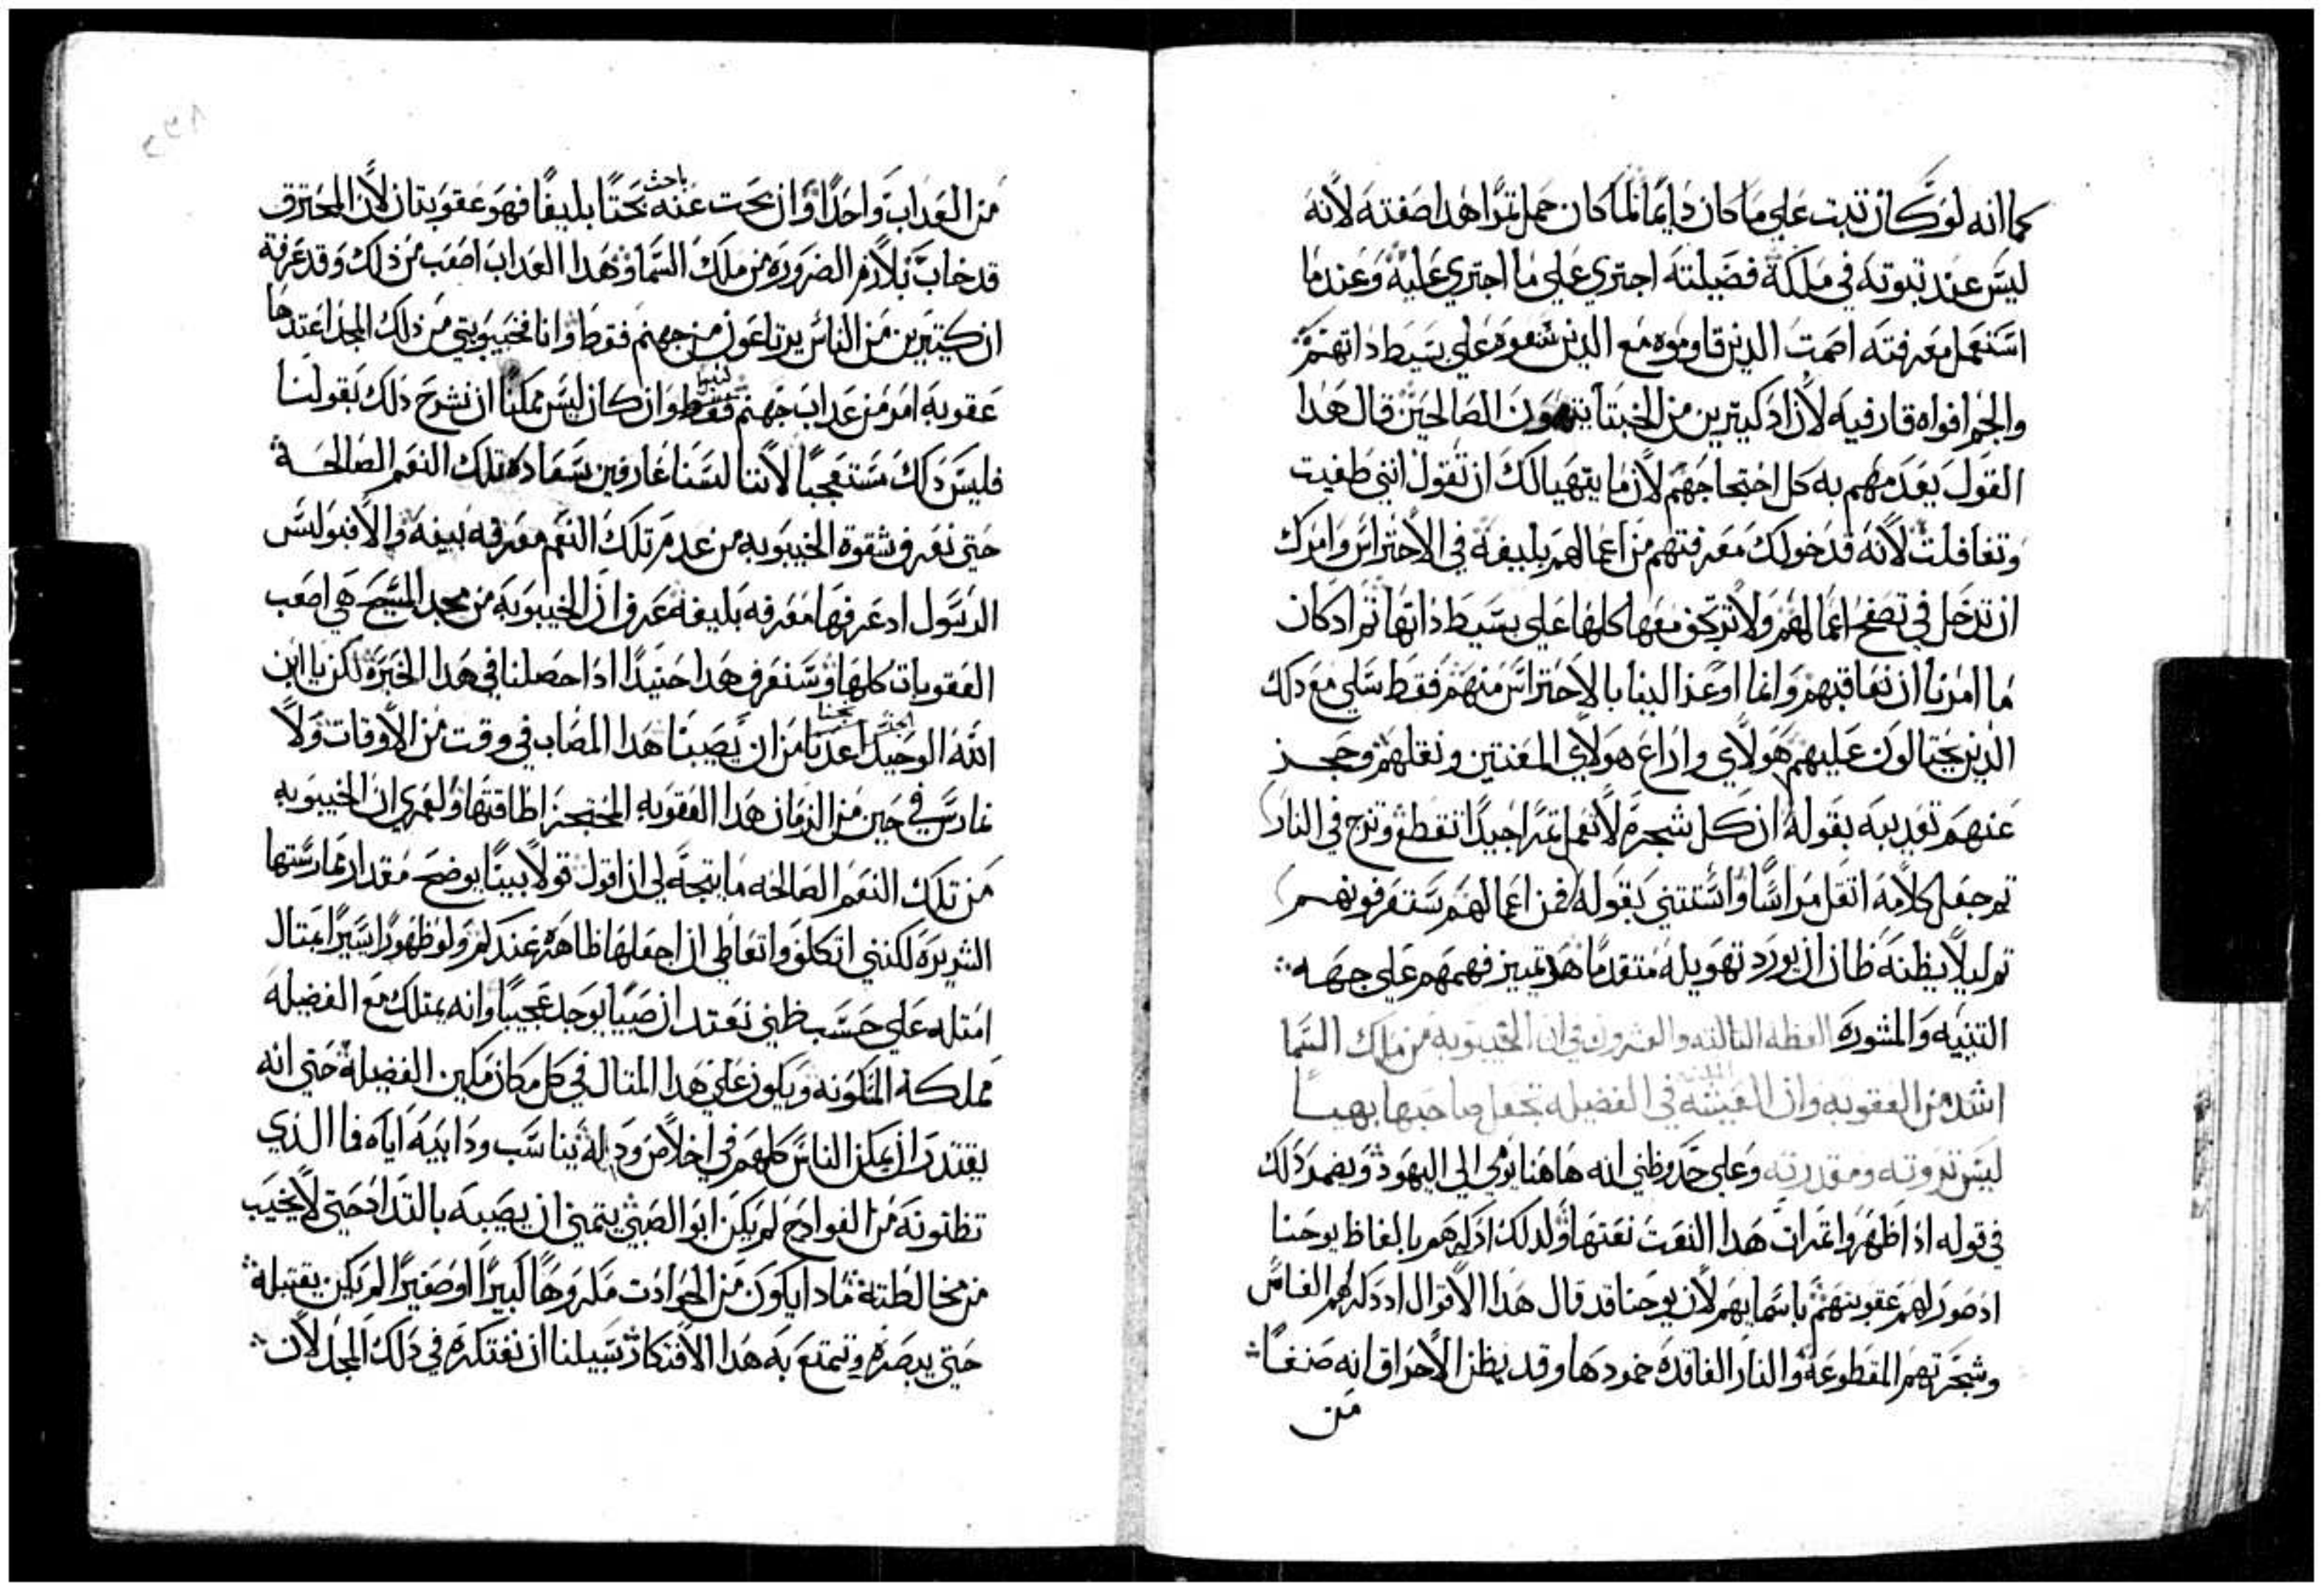 كما انه لو كان تبت علي ما كان دايما لما كان حمل تمرا هدا صفته لانه
ليس عند تبوته في ملكة فضيلته اجتري علي ما اجتري عليه وعند ما
استعمل معرفته اصمت الدين قاوموه مع الدين شعوه علي بسيط داتهم
والجم افواه قارفيه لان اد كيترين من الخبتا يتهمون الصالحين قال هدا
القول يعدمهم به كل احتجاجهم لان ما يتهيا لك ان تقول انني طغيت
وتغافلت لانه قد خولك معرفتهم من اعمالهم بليغة في الاحتراس وامرك
ان تدخل في تصفح اعمالهم ولا ترتجف معها كلها علي بسيط داتها تم اد كان
ما امرنا ان نعاقبهم وانما اوعز الينا بالاحتراس منهم فقط سلي مع دلك
الدين يحتالون عليهم هولاي واراع هولاي المغتين ونقلهم وحجز
عنهم تعديبه بقوله ان كل شجرة لا تعمل تمرا جيدا تقطع وتزج في النار
تم جعل كلامه اتقل مراسا واستتني بقوله فمن اعمالهم ستعرفونهم
تم ليلا يظنه ظان ان يورد تهويله متقدما هو تمييز فهمهم علي جهه
التنبيه والمشوره العظه التالته والعشرون في ان الخيبوبه من ملك السما
اشد من العقوبه وان العيشه في الفضيله تجعل صاحبها بهيا
ليس تروته ومقدرته وعلي حد وظني انه هاهنا يومي الي اليهود ويضمر دلك
في قوله اد اظهروا تمرات هدا النعت نعتها ولدلك ادكرهم بالفاظ يوحنا
اد صور لهم عقوبتهم باسمايهم لان يوحنا قد قال هدا الاقوال اد دكر لهم الفاس
وشجرتهم المقطوعة والنار الفاقده خمودها وقد يظن الاحراق انه صنفا
من
من العداب واحدا وان بحت عنه باحث بحتا بليغا فهو عقوبتان لان المحترق
قد خاب بلازم الضروره من ملك السما وهدا العداب اصعب من دلك وقد عرفته
ان كتيرين من الناس يرتاعون من جهنم فقط وانا فخيبوبتي من دلك المجد اعتدها
عقوبه امر من عداب جهنم فقط كتيرا وان كان ليس ممكنا ان نشرح دلك بقولنا
فليس دلك مستعجبا لاننا لسنا عارفين سعادة تلك النعم الصالحة
حتي نعرف شقوة الخيبوبه من عدم تلك النعم معرفه بليغه والا فبولس
الرسول اد عرفها معرفه بليغة عرف ان الخيبوبة من مجد المسيح هي اصعب
العقوبات كلها وسنعرف هدا حنيدا ادا حصلنا في هدا الخبره لكن يا ابن
الله الوحيد اعدنا من ان يصيبنا هدا المصاب في وقت من الاوقات ولا
نمارس في حين من الزمان هدا العقوبه المحتجز اطاقتها ولعمري ان الخيبوبه
من تلك النعم الصالحه ما يتجه لي ان اقول قولا بينا يوضح مقدار ممارستها
الشريرة لكنني اتكلف واتعاطي ان اجعلها ظاهره عندكم ولو ظهورا يسيرا بمتال
امتله علي حسب ظني نعتد ان صبيا يوجد عجيبا وانه يمتلك مع الفضيله
مملكة المسكونه ويكون علي هدا المتال في كل مكان مكين الفضيلة حتي انه
يقتدر ان يمكن الناس كلهم في اخلاص وده له يناسب ود ابيه اياه فما الدي
تظنونه من الفوادح لم يكن ابو الصبي يتمني ان يصيبه بالتداد حتي لا يخيب
من مخالطته مادا يكون من الحوادت مكروها كبيرا او صغيرا لم يكن يقتبله
حتي يبصره ويتمتع به هدا الافتكار سبيلنا ان نفتكره في دلك المجد لان